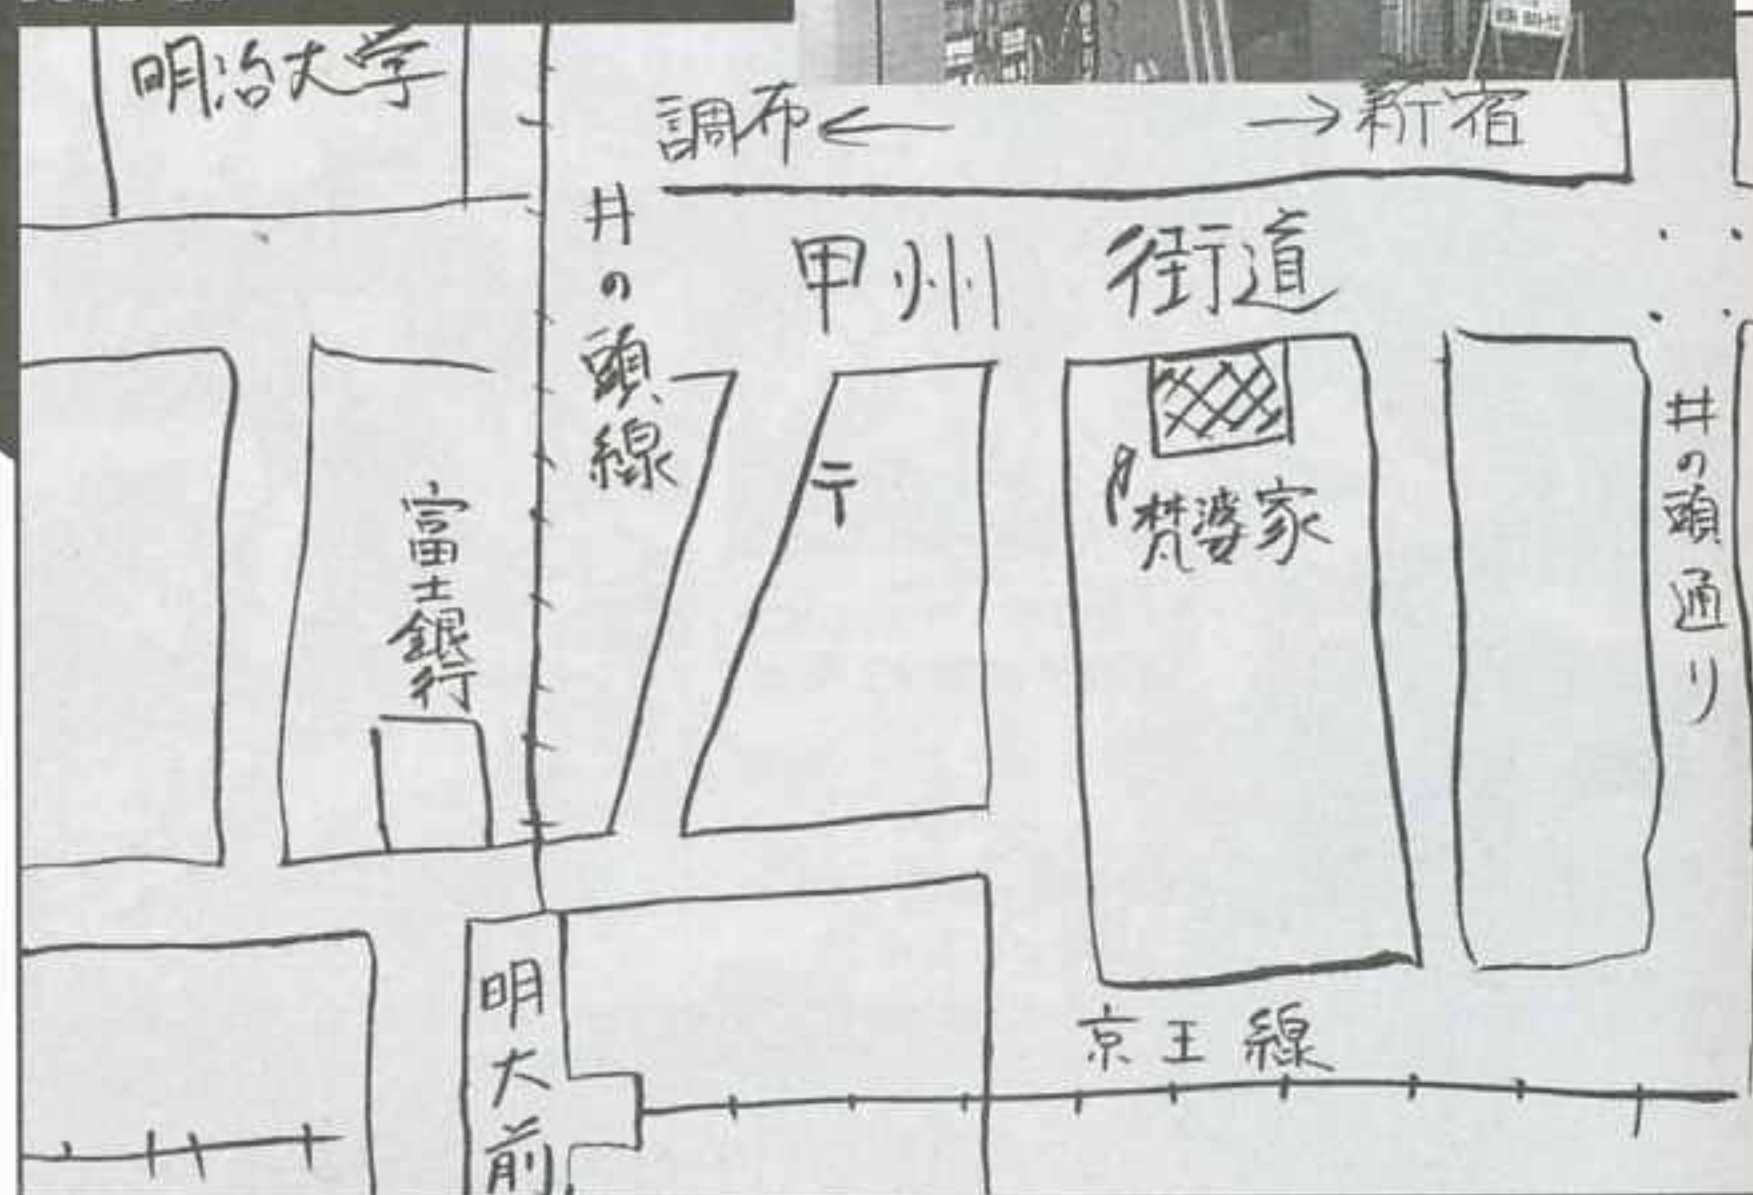 明治大学
調布← →新宿
井の頭線
甲州街道
〒
梵婆家
井の頭通り
富士銀行
京王線
明大前